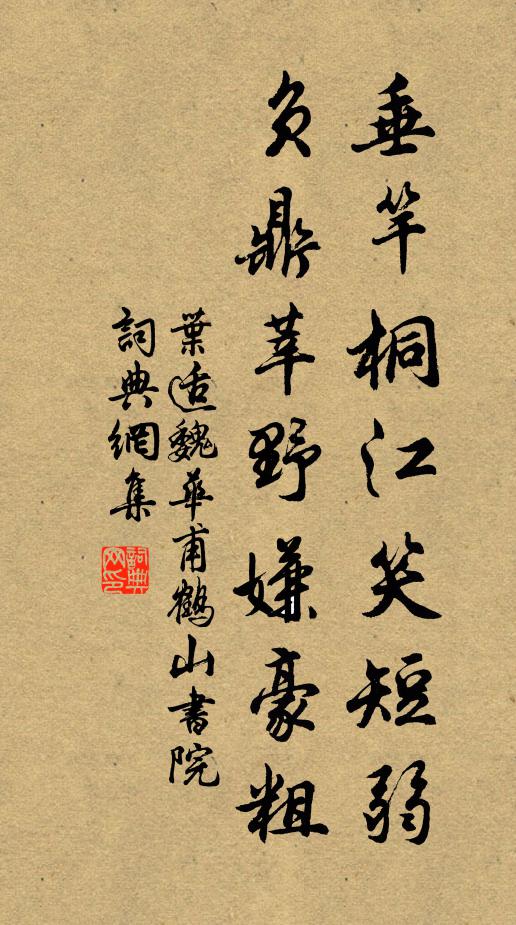 垂竿桐江笑短弱
負鼎莘野嫌豪粗
葉适魏華甫鶴山書院
詞典網集
詞典
网印